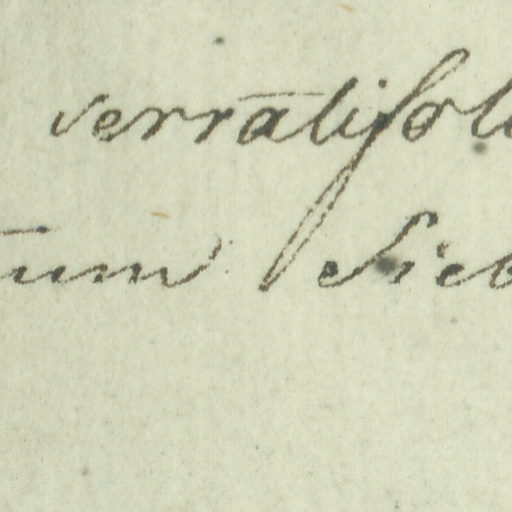 serratifol
tum Sieb